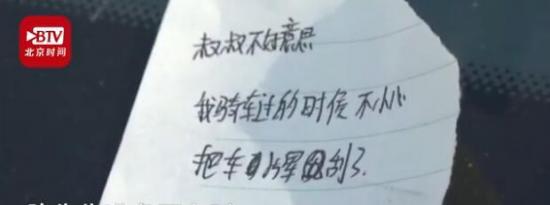 BTV
北京时间
叔叔不好意思
我骑车过的时候 不小心
把车牌刮了.